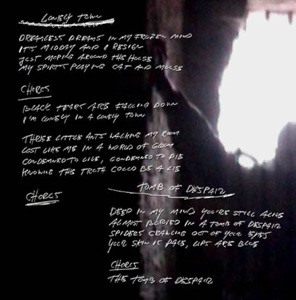 LONELY TOWN
DREAMLESS DREAMS IN MY FROZEN MIND
IT'S MIDDAY AND I RESIGN
JUST MOPING AROUND THE HOUSE
MY SPIRITS PLAYING CAT AND MOUSE
CHORUS
BLACK TEARS ARE FALLING DOWN
I'M LONELY IN A LONELY TOWN
THREE LITTLE ANTS WALKING MY ROOM
LOST LIKE ME IN A WORLD OF GLOOM
CONDEMNED TO LIVE, CONDEMNED TO DIE
KNOWING THE TRUTH COULD BE A LIE
CHORUS
TOMB OF DESPAIR
DEEP IN MY MIND YOU'RE STILL ALIVE
ALMOST BURIED IN A TOMB OF DESPAIR
SPIDERS CRAWLING OUT OF YOUR EYES
YOUR SKIN IS PALE, LIPS ARE BLUE
CHORUS
THE TOMB OF DESPAIR